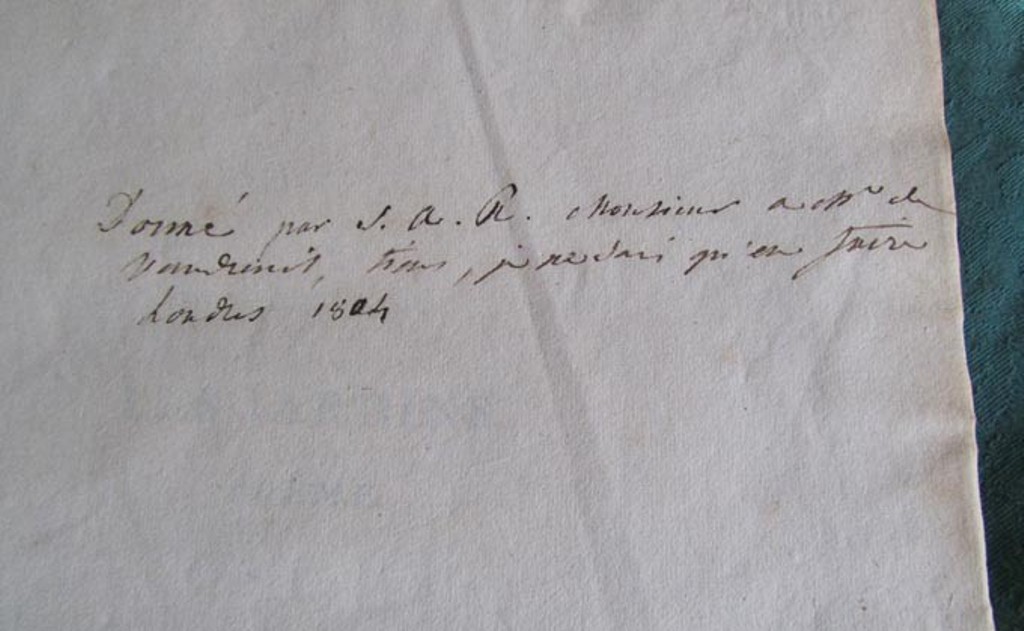 Donné par S. A. R. Monsieur a Mr de
Vaudreuil, tiens, je ne sais qu'en faire
Londres 1804